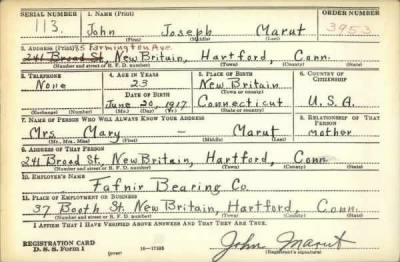 SERIAL NUMBER 1. NAME (Print) ORDER NUMBER
113. John Joseph Marut 3953
(First) (Middle) (Last)
2. ADDRESS (Print) 85 Farmington Ave.
241 Broad St. New Britain, Hartford, Conn.
(Number and street or R. F. D. number) (Town) (County) (State)
3. TELEPHONE 4. AGE IN YEARS 5. PLACE OF BIRTH 6. COUNTRY OF CITIZENSHIP
None 23 New Britain
DATE OF BIRTH (Town or county)
June 20, 1917 Connecticut U.S.A.
(Exchange) (No.) (Mo.) (Day) (Yr.) (State or country)
7. NAME OF PERSON WHO WILL ALWAYS KNOW YOUR ADDRESS 8. RELATIONSHIP OF THAT PERSON
Mrs. Mary – Marut mother
(Mr., Mrs., Miss) (First) (Middle) (Last)
9. ADDRESS OF THAT PERSON
241 Broad St. New Britain, Hartford, Conn.
(Number and street or R. F. D. number) (Town) (County) (State)
10. EMPLOYER'S NAME
Fafnir Bearing Co.
11. PLACE OF EMPLOYMENT OR BUSINESS
37 Booth St. New Britain, Hartford, Conn.
(Number and street or R. F. D. number) (Town) (County) (State)
I AFFIRM THAT I HAVE VERIFIED ABOVE ANSWERS AND THAT THEY ARE TRUE.
REGISTRATION CARD
D. S. S. Form 1 (over) 16—17105 John Marut
(Registrant's signature)